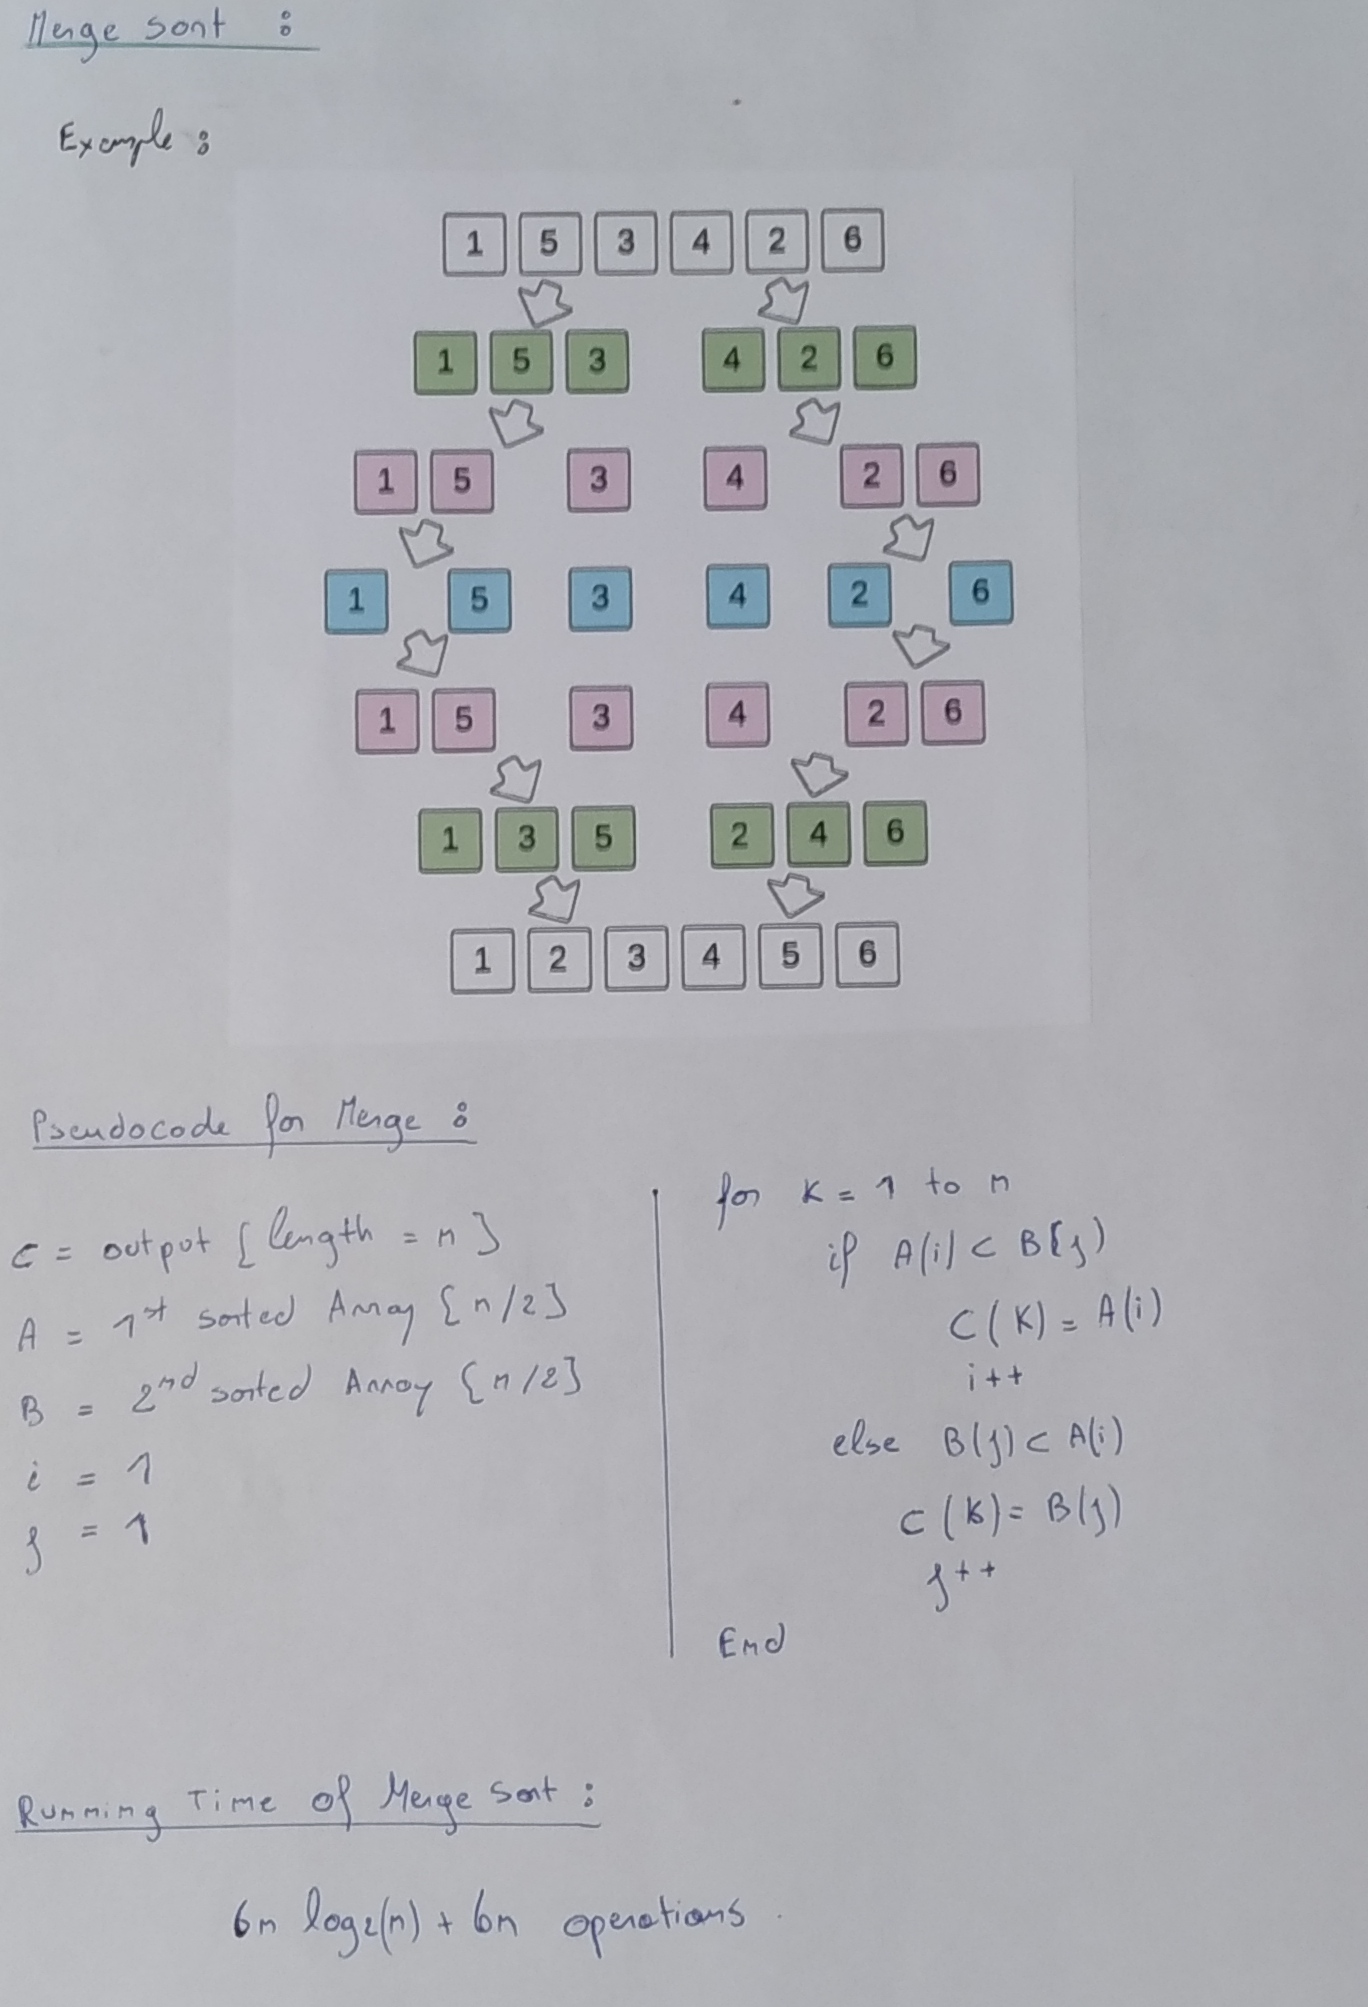 Merge sort :
Example :
1 5 3 4 2 6
1 5 3 4 2 6
1 5 3 4 2 6
1 5 3 4 2 6
1 5 3 4 2 6
1 3 5 2 4 6
1 2 3 4 5 6
Pseudocode for Merge :
C = output [length = n]
A = 1st sorted Array [n/2]
B = 2nd sorted Array [n/2]
i = 1
j = 1
for K = 1 to n
if A(i) < B(j)
C(K) = A(i)
i++
else B(j) < A(i)
C(K) = B(j)
j++
End
Running Time of Merge Sort :
6n log2(n) + 6n operations.